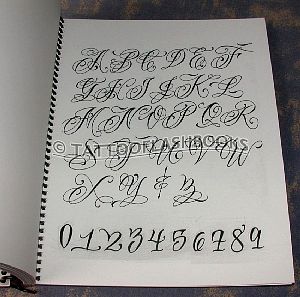 A B C D E F
G H I J K L
M N O P Q R
© TATTOOFLASHBOOKS
S T U V W
X Y & Z
0 1 2 3 4 5 6 7 8 9